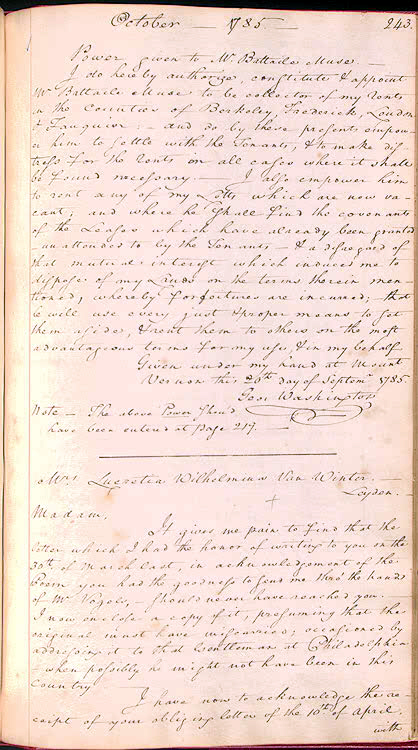 October — 1785 — 243.
Power given to Mr. Battaile Muse. —
I do hereby authorize, constitute & appoint
Mr. Battaile Muse to be collector of my rents
in the Counties of Berkeley, Frederick, Loudon
& Fauquier: — and do by these presents empow-
er him to settle with the Tenants, & to make dis-
tress for the rents on all cases where it shall
be found necessary. — I also empower him
to rent any of my Lotts which are now va-
cant; and where he shall find the covenants
of the Leases which have already been granted
unattended to by the Tenants — & a disregard of
that mutual interest which induced me to
dispose of my Lands on the terms therein men-
tioned, whereby forfeitures are incurred; that
he will use every just & proper means to set
them aside, & rent them to others on the most
advantageous terms for my use, & in my behalf.
Given under my hand at Mount
Vernon this 26th day of Septemr. 1785.
Geo: Washington
Note — The above Power shou'd
have been entered at page 217. —
Mrs. Lucretia Wilhelmina Van Winter. —
Leyden.
Madam,
It gives me pain to find that the
letter which I had the honor of writing to you on the
30th. of March last, in acknowledgement of the
Poem you had the goodness to send me thro' the hands
of Mr. Vogels, — should never have reached you. —
I now enclose a copy of it, presuming that the
original must have miscarried; occasioned by
addressing it to that Gentleman at Philadelphia
— when possibly he might not have been in this
Country.
I have now to acknowledge the re-
ceipt of your obliging letter of the 10th. of April.
with